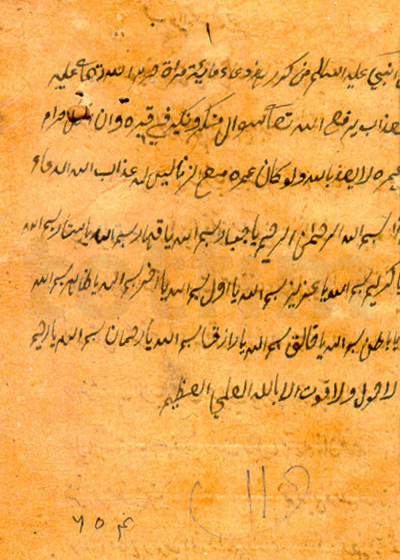 ١
النبي عليه السلام من كرر دعاء مائة مراة حرم الله تعالى عليه
عذاب يرفع الله تعالى سوال منكر ونكير في قبره وان حرام
عمره لا يعذبالله ولو كان عمره مع الزنا ليس له عذاب الله الدعاء
بسم الله الرحمان الرحيم يا جبار بسم الله يا قهار بسم الله يا ستار بسم الله
يا كريم بسم الله يا عزيز بسم الله يا اول بسم الله يا اخر بسم الله يا ظاهر بسم الله
يا باطن بسم الله يا خالق بسم الله يا رازق بسم الله يا رحمان بسم الله يا رحيم
لا حول ولا قوت الا بالله العلي العظيم